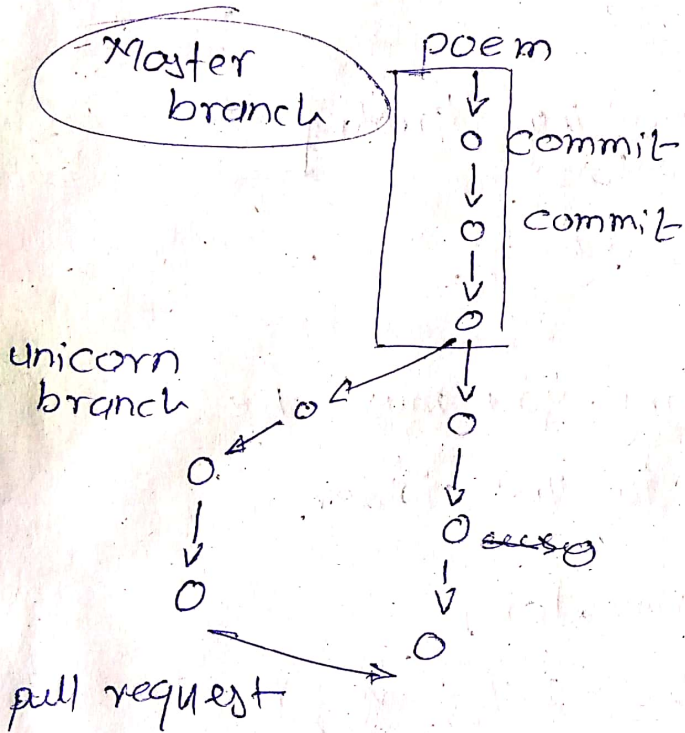 Master
branch.
poem
commit
commit
unicorn
branch
pull request